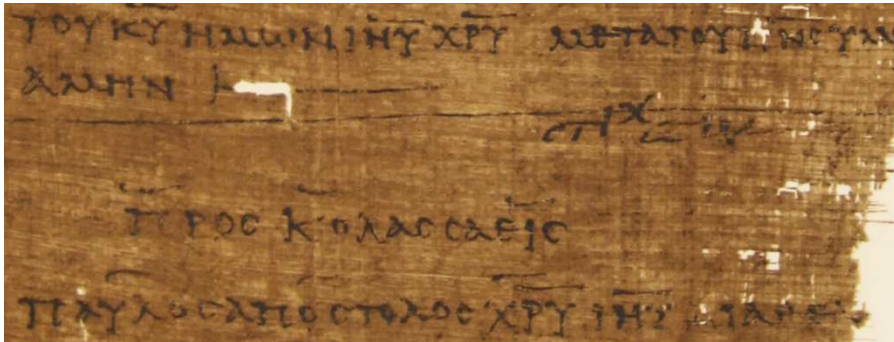 ΤΟΥ Κ̅Υ̅ ΗΜΩΝ Ι̅Η̅Υ̅ Χ̅Ρ̅Υ̅ ΜΕΤΑ ΤΟΥ Π̅Ν̅Ϲ̅ ΥΜ
ΑΜΗΝ
ϹΤΙΧ
ΠΡΟϹ ΚΟΛΑϹϹΑΕΙϹ
ΠΑΥΛΟϹ ΑΠΟϹΤΟΛΟϹ Χ̅Ρ̅Υ̅ Ι̅Η̅Υ̅ ΔΙΑ ΘΕ